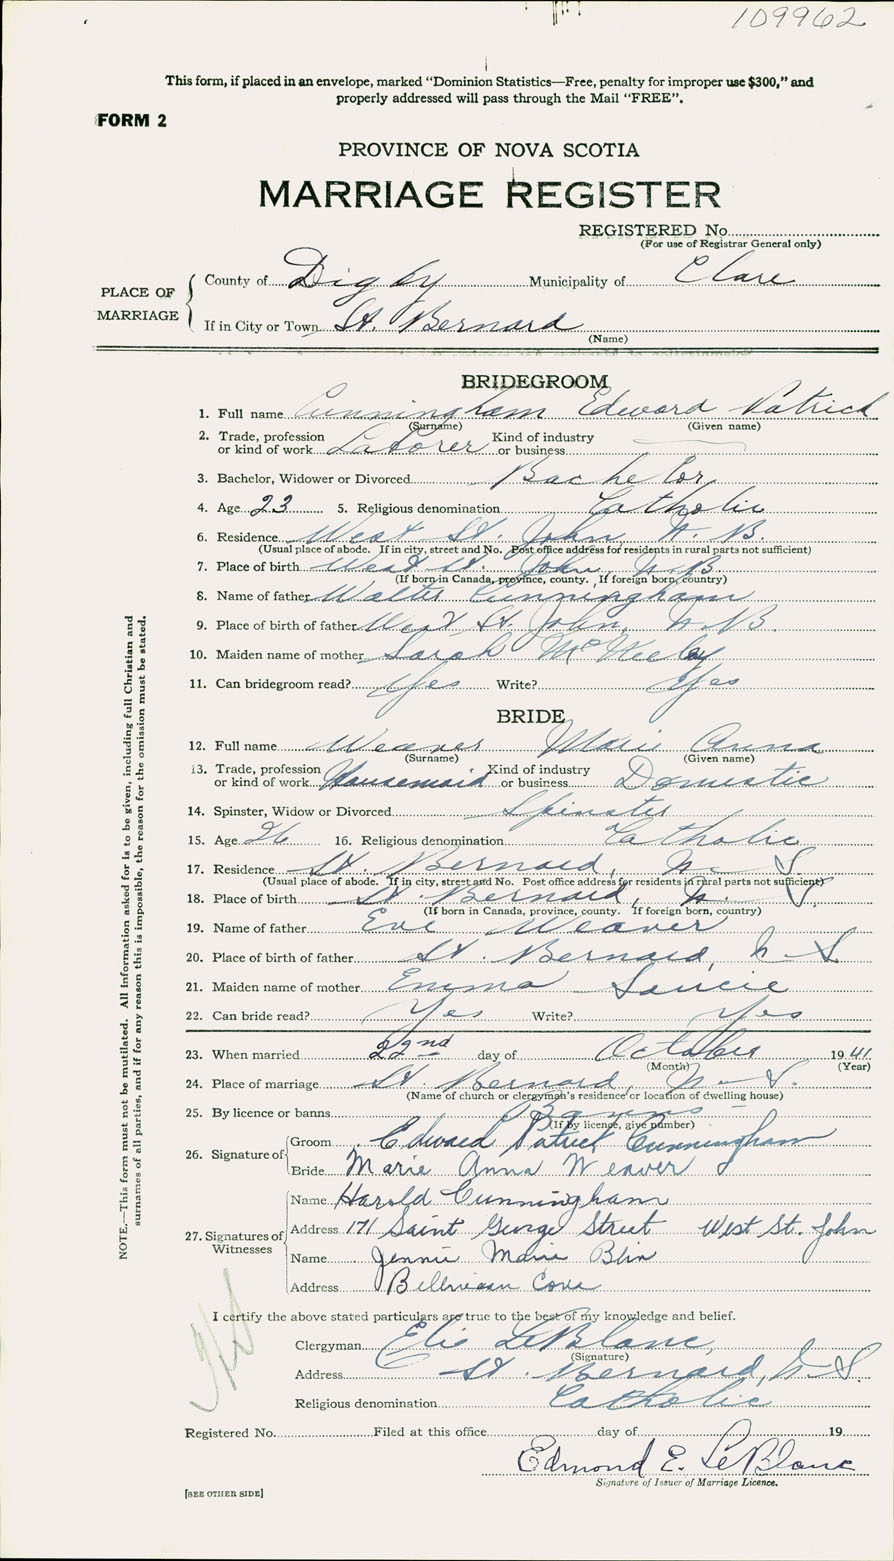 109962
This form, if placed in an envelope, marked “Dominion Statistics—Free, penalty for improper use $300,” and
properly addressed will pass through the Mail “FREE”.
FORM 2
PROVINCE OF NOVA SCOTIA
MARRIAGE REGISTER
REGISTERED No.
(For use of Registrar General only)
PLACE OF MARRIAGE
County of Digby Municipality of Clare
If in City or Town St. Bernard
(Name)
BRIDEGROOM
1. Full name Cunningham Edward Patrick
(Surname) (Given name)
2. Trade, profession or kind of work Laborer Kind of industry or business
3. Bachelor, Widower or Divorced Bachelor
4. Age 23 5. Religious denomination Catholic
6. Residence West St. John N. B.
(Usual place of abode. If in city, street and No. Post office address for residents in rural parts not sufficient)
7. Place of birth West St. John, N. B.
(If born in Canada, province, county. If foreign born, country)
8. Name of father Walter Cunningham
9. Place of birth of father West St. John, N. B.
10. Maiden name of mother Sarah
11. Can bridegroom read? Yes Write? Yes
BRIDE
12. Full name Weaver Marie Anna
(Surname) (Given name)
13. Trade, profession or kind of work Housemaid Kind of industry or business Domestic
14. Spinster, Widow or Divorced Spinster
15. Age 26 16. Religious denomination Catholic
17. Residence St. Bernard, N. S.
(Usual place of abode. If in city, street and No. Post office address for residents in rural parts not sufficient)
18. Place of birth St. Bernard, N. S.
(If born in Canada, province, county. If foreign born, country)
19. Name of father Weaver
20. Place of birth of father St. Bernard, N. S.
21. Maiden name of mother Emma
22. Can bride read? Yes Write? Yes
23. When married 22nd day of October 1941
(Month) (Year)
24. Place of marriage St. Bernard, N. S.
(Name of church or clergyman's residence or location of dwelling house)
25. By licence or banns Banns
(If by licence, give number)
26. Signature of
Groom Edward Patrick Cunningham
Bride Marie Anna Weaver
27. Signatures of Witnesses
Name Harold Cunningham
Address 171 Saint George Street West St. John
Name Jennie Marie Blin
Address Belliveau Cove
I certify the above stated particulars are true to the best of my knowledge and belief.
Clergyman Elie LeBlanc,
(Signature)
Address St. Bernard, N. S.
Religious denomination Catholic
Registered No. Filed at this office day of 19
Edmond E. LeBlanc
Signature of Issuer of Marriage Licence.
[SEE OTHER SIDE]
NOTE.—This form must not be mutilated. All information asked for is to be given, including full Christian and
surnames of all parties, and if for any reason this is impossible, the reason for the omission must be stated.